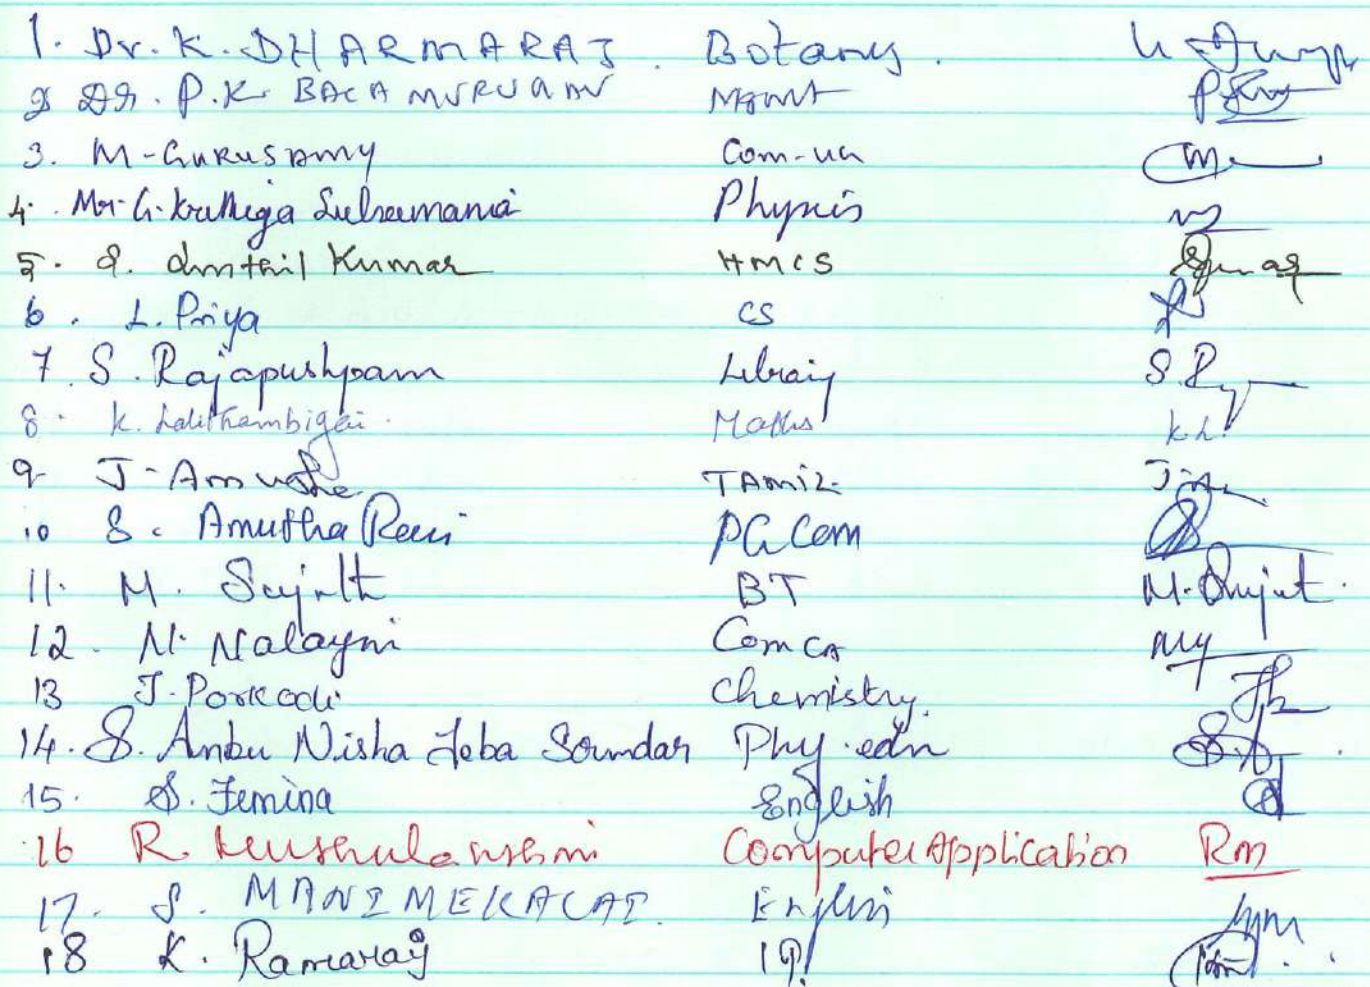 1. Dr. K. DHARMARAJ. Botany.
2 Dr. P.K. BALAMURUGAN MGMT
3. M-GURUSAMY Com-UA
4. Mr. G. Karthiga Subramania Physics
5. S. Senthil Kumar HMCS
6. L. Priya CS
7. S. Rajapushpam Library S.R
8. K. Lalithambigai. Maths K.L
9 J-Anusha TAMIL
10 S. Amutha Rani PG Com
11. M. Sujith BT M. Sujit.
12. N. Nalayni Com CA
13 J. Porkodi Chemistry.
14. S. Anbu Nisha Jeba Soundar Phy. edn
15. S. Femina English
16 R. Computer Application Rm
17. S. MANIMEKALAI. English
18 K. Ramaraj